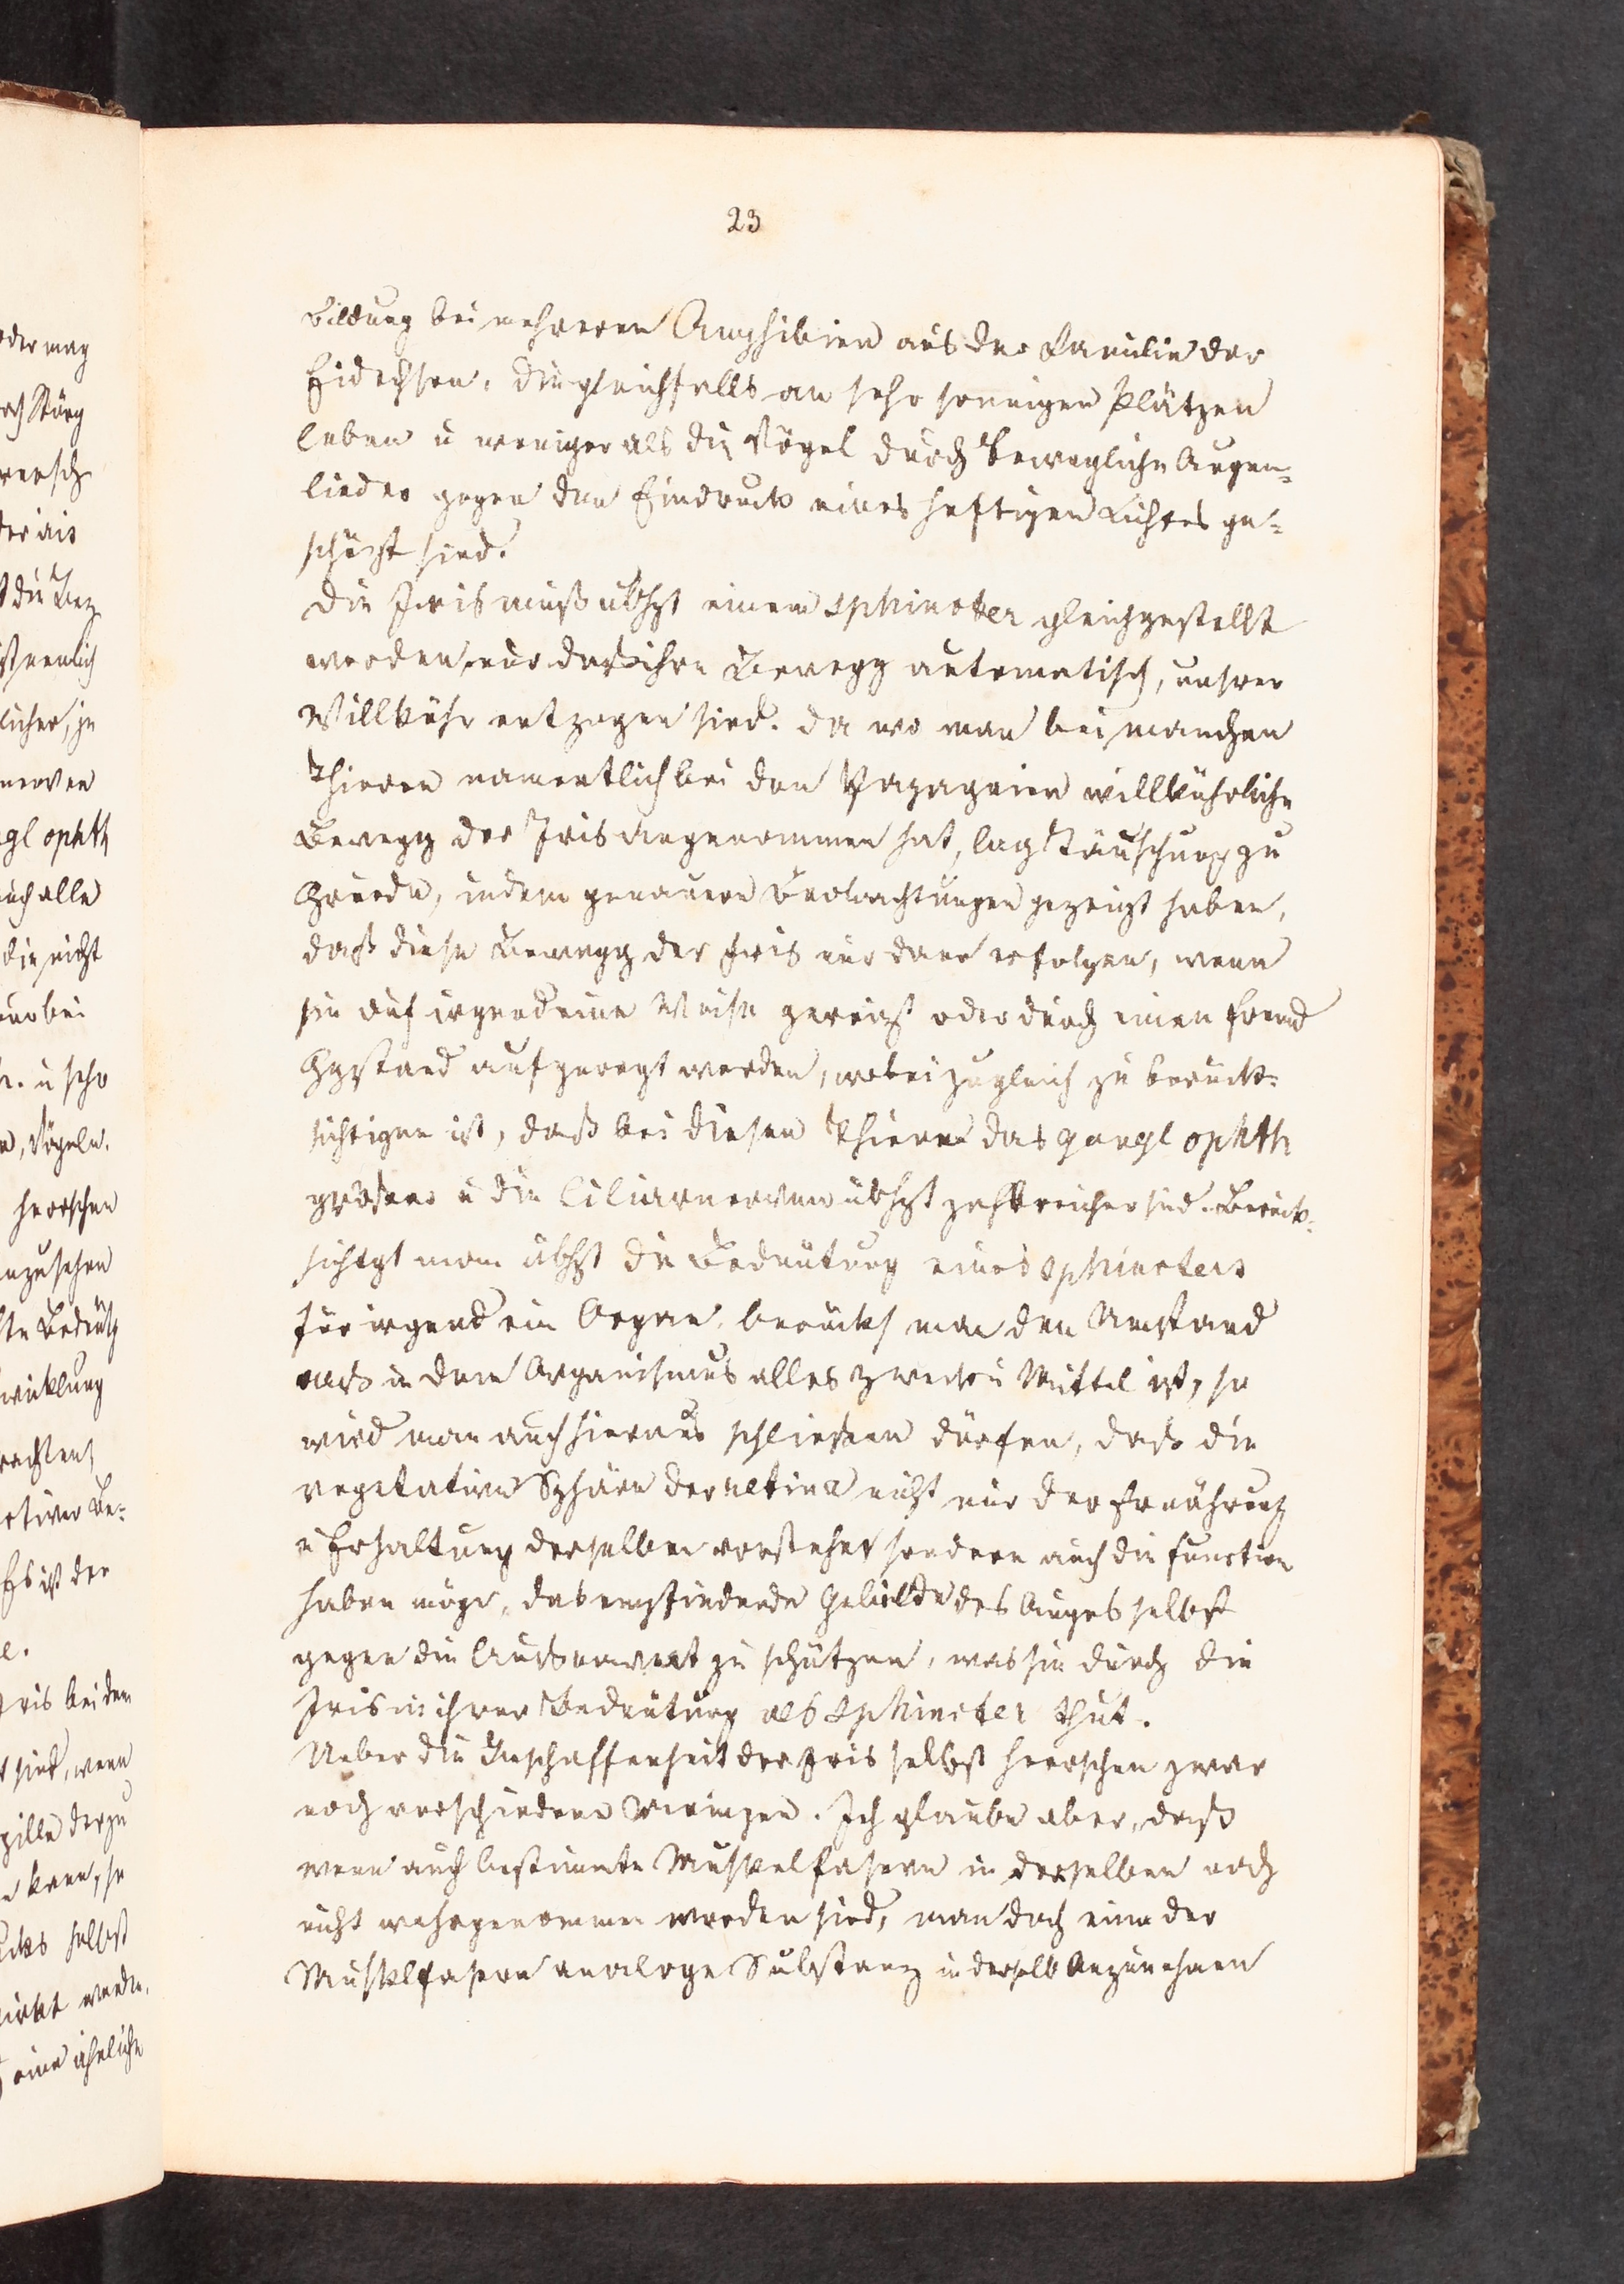 23
Bildung bei mehreren Amphibien aus der Familie der
Eidechsen, die gleichfalls an sehr sonnigen Plätzen
leben u weniger als die Vögel durch bewegliche Augen=
lieder gegen den Eindruck eines heftigen Lichtes ge=
schüzt sind.
Die Iris muß übhpt einem sphincter gleichgestellt
werden, nur daß ihre Bewegg automatisch, unsrer
Willkühr entzogen sind. Da wo man bei manchen
Thieren namentlich bei den Papageien willkührliche
Bewegg der Iris angenommen hat, lag Täuschung zu
Grunde, indem genauere Beobachtungen gezeigt haben,
daß diese Bewegg der Iris nur dann erfolgen, wenn
sie auf irgend eine Weise gereizt oder durch einen fremd
Ggstand aufgeregt werden, wobei zugleich zu berück=
sichtigen ist, daß bei diesen Thieren das gangl ophth
größer u die Ciliarnerven übhpt zahlreicher sind. Berück=
sichtgt man übhpt die Bedeutung eines sphincters
für irgend ein Organ, berücks man den Umstand
daß in dem Organismus alles Zweck u Mittel ist, so
wird man auch hieraus schließen dürfen, daß die
vegetative Sphäre der retina nicht nur der Ernährung
u Erhaltung derselben vorstehet sondern auch die Function
haben möge, das empfindende Gebilde des Auges selbst
gegen die Aussenwelt zu schützen, was sie durch die
Iris in ihrer Bedeutung als sphincter thut.
Ueber die Beschaffenheit der Iris selbst herrschen zwar
noch verschiedene Meingen. Ich glaube aber, daß
wenn auch bestimmte Muskelfasern in derselben noch
nicht wahrgenommen worden sind, man doch eine der
Muskelfasern analoge Substanz in derselb anzunehmen
oder mag
die Bez
nerven
gl ophth
auch alle
die nicht
nur bei
u sehr
Vögeln.
herrschen
anzusehen
Bedeutg
wicklung
Es ist der
Iris bei dem
sind, wenn
kann, so
selbst
werden,
eine ähnliche